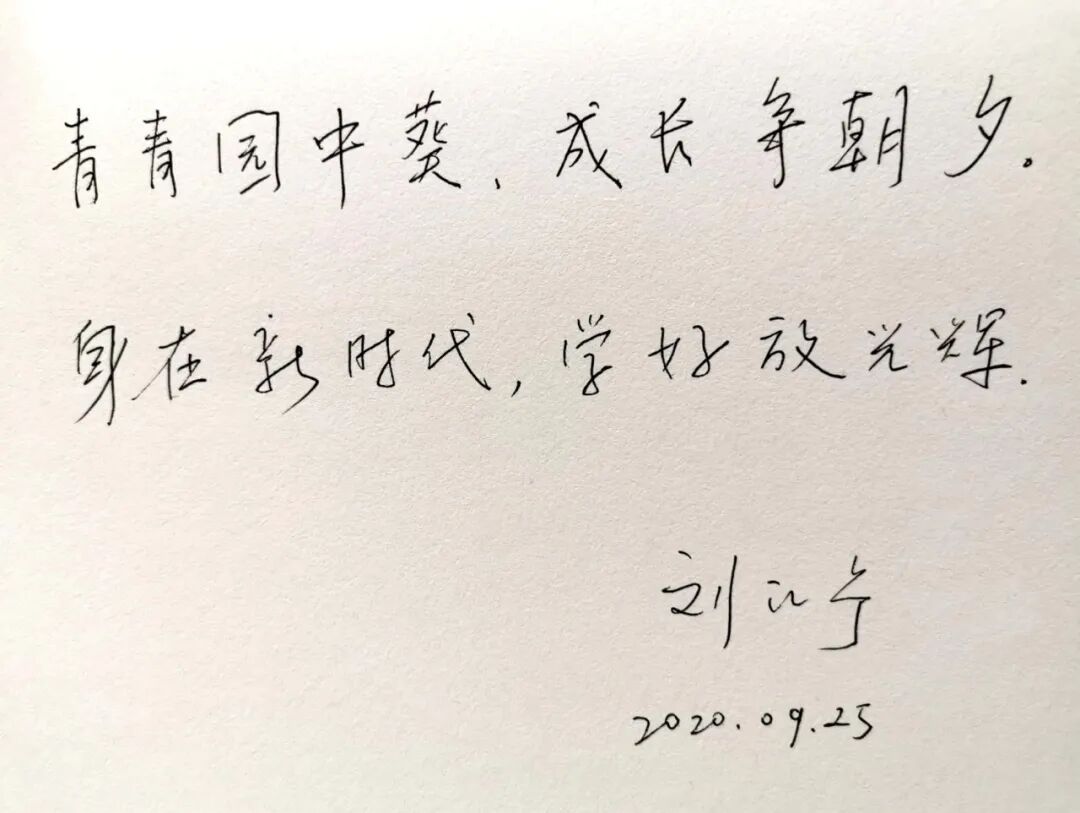 青青园中葵、成长争朝夕。
身在新时代,学好放光辉.
刘江宁
2020.09.25